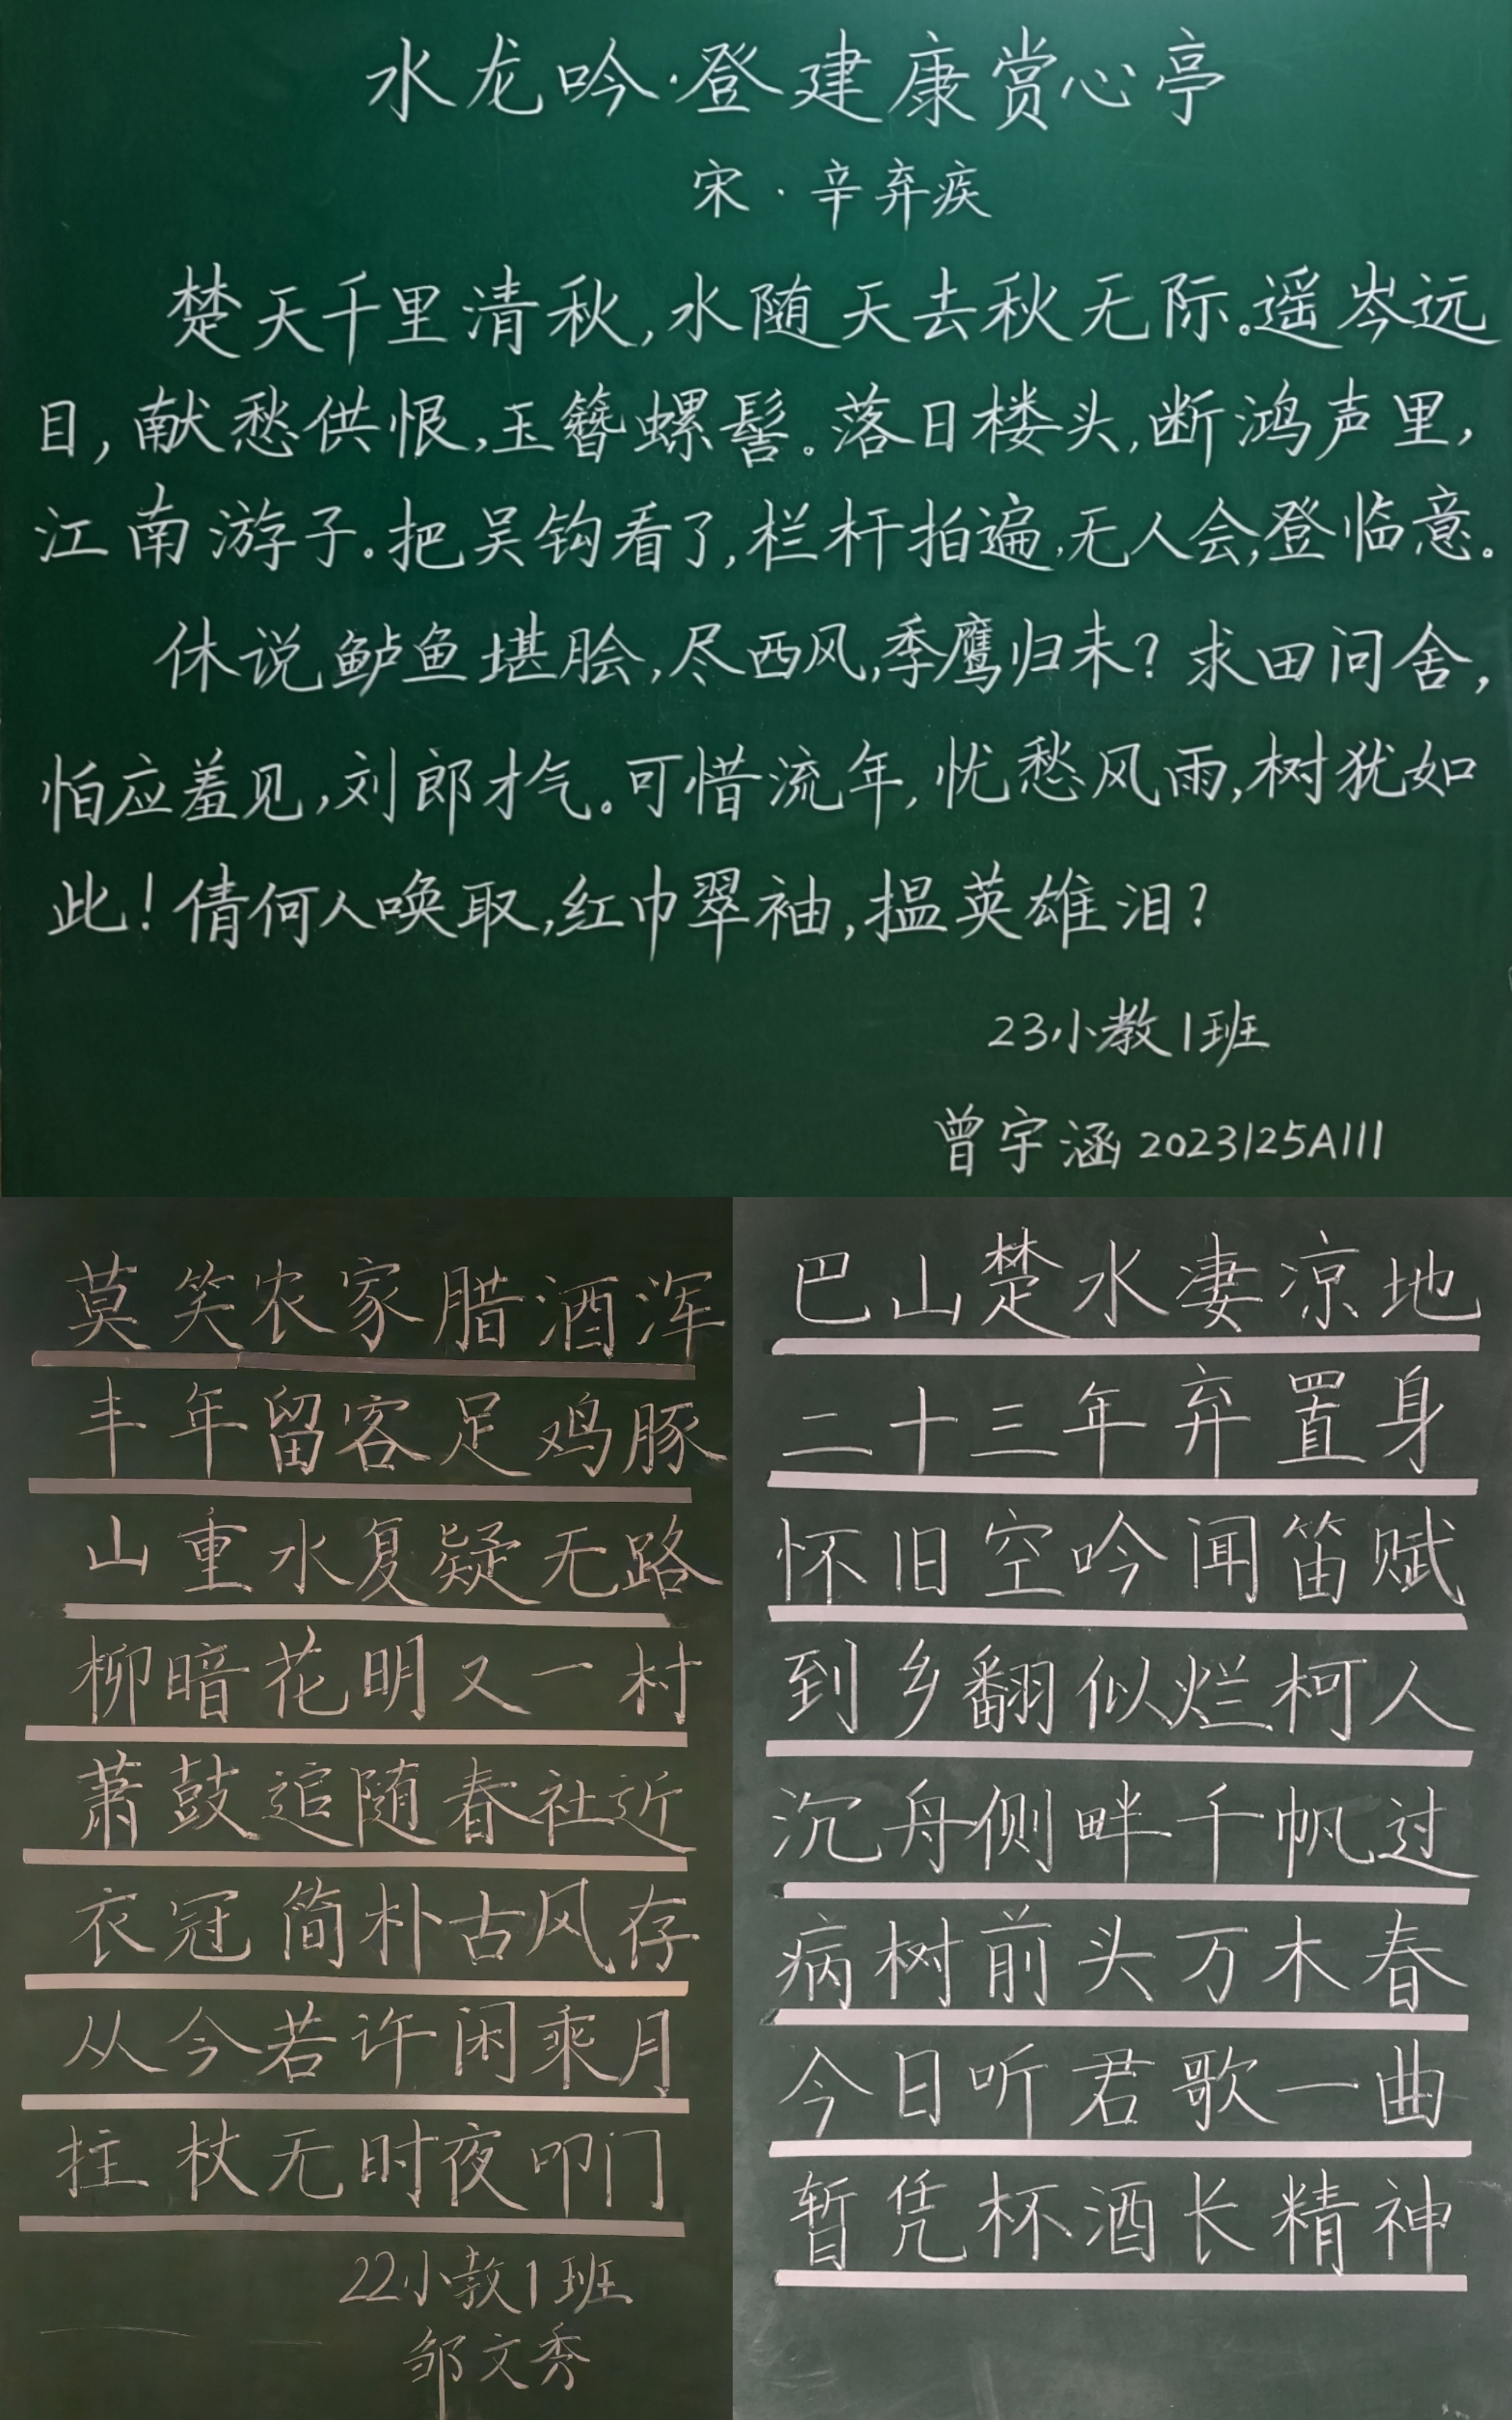 水龙吟·登建康赏心亭
宋·辛弃疾
楚天千里清秋,水随天去秋无际。遥岑远
目,献愁供恨,玉簪螺髻。落日楼头,断鸿声里,
江南游子。把吴钩看了,栏杆拍遍,无人会,登临意。
休说鲈鱼堪脍,尽西风,季鹰归未?求田问舍,
怕应羞见,刘郎才气。可惜流年,忧愁风雨,树犹如
此!倩何人唤取,红巾翠袖,揾英雄泪?
23小教1班
曾宇涵 2023125A111
莫笑农家腊酒浑
丰年留客足鸡豚
山重水复疑无路
柳暗花明又一村
萧鼓追随春社近
衣冠简朴古风存
从今若许闲乘月
拄杖无时夜叩门
22小教1班
邹文秀
巴山楚水凄凉地
二十三年弃置身
怀旧空吟闻笛赋
到乡翻似烂柯人
沉舟侧畔千帆过
病树前头万木春
今日听君歌一曲
暂凭杯酒长精神